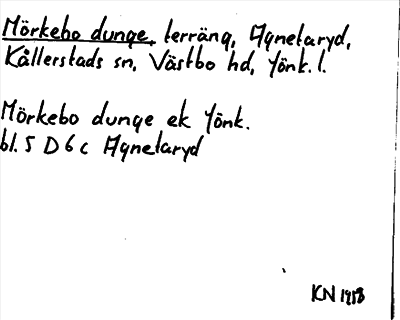 Mörkebo dunge, terräng, Agnetaryd,
Kållerstads sn, Västbo hd, Jönk. l.
Mörkebo dunge ek Jönk.
bl. 5 D 6 c Agnetaryd
KN 1958